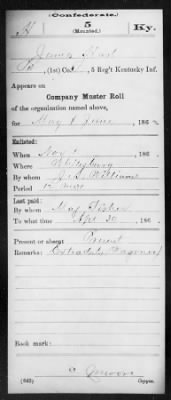 (Confederate.)
H 5 Ky.
(Mounted.)
James
Pvt, (1st) Co. , 5 Reg't Kentucky Inf.
Appears on
Company Muster Roll
of the organization named above,
for May & June, 186
Enlisted:
When Nov 1, 186
Where Whitesburg
By whom J. S. Williams
Period 12 mos
Last paid:
By whom Maj.
To what time Apl 30, 186
Present or absent Present
Remarks: Extra duty (Wagoner)
Book mark:
(642) Copyist.